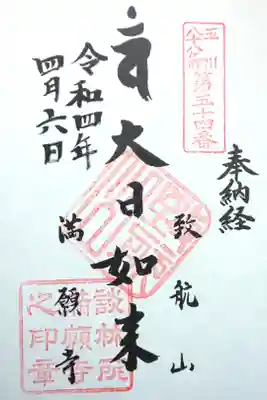 奉納経
第五十四番
致航山
大日如来
満願寺
令和四年
四月六日
談林所
満願寺
之印章